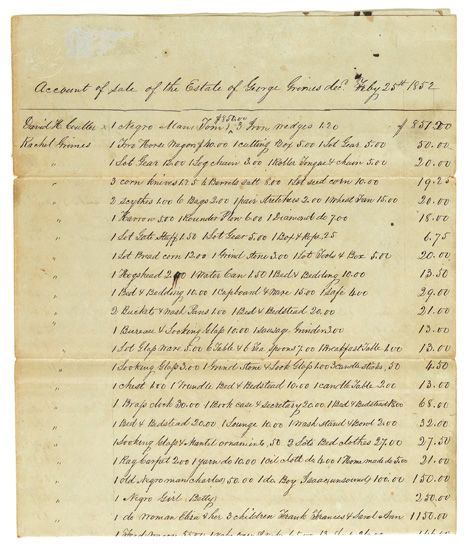 Account of sale of the Estate of George Grimes decd. Feby 25th 1852
$850.00
David H. Coulter x 1 Negro Man Tom 1, 3 Iron wedges 1.20 $ 851.20
Rachel Grimes 1 Two Horse Wagon 40.00 1 cutting Box 5.00 1 Lot Gear 5.00 50.00
" 1 Lot Gear 12.00 1 Log chain 3.00 1 Roller Tongue & chain 5.00 20.00
" 3 corn knives 1.75 4 Barrels salt 8.00 1 Lot seed corn 10.00 19.25
" 2 scythes 1.00 6 Bags 2.00 1 pair stretchers 2.00 1 Wheat Fan 15.00 20.00
" 1 Harrow 5.00 1 Rounder Plow 6.00 1 Diamond do 7.00 18.00
" 1 Lot 1.50 1 Lot Gear 5.00 1 Box & .25 6.75
" 1 Lot Broad corn 12.00 1 Grind Stone 3.00 1 Lot Tools & Box 5.00 20.00
" 1 Hogshead 2.00 1 Water Can 1.50 1 Bed & Bedding 10.00 13.50
" 1 Bed & Bedding 10.00 1 Cupboard & Ware 15.00 1 Safe 4.00 29.00
" 2 Bucket & Wash Pans 1.00 1 Bed & Bedstead 20.00 21.00
" 1 Bureau & Looking Glass 10.00 1 sausage Grinder 3.00 13.00
" 1 Lot Glass Ware 5.00 6 Table & 6 Tea spoons 7.00 1 Breakfast Table 1.00 13.00
" 1 Looking Glass 3.00 1 Grind Stone & Look Glass 1.00 3 candlesticks .50 4.50
" 1 chest 1.00 1 Trundle Bed & Bedstead 10.00 1 candle Table 2.00 13.00
" 1 Brass clock 30.00 1 Book case & secretary 20.00 1 Bed & Bedstead 18.00 68.00
" 1 Bed & Bedstead 20.00 1 Lounge 10.00 1 Wash stand & Bowl 2.00 32.00
" 1 Looking Glass & Mantel ornaments .50 2 Lots Bed clothes 27.00 27.50
" 1 Rag Carpet 2.00 1 yarn do 10.00 1 oil cloth do 4.00 1 Home made do 5.00 21.00
" 1 old Negro man Charles, 50.00 1 do. Boy Isaac, unsound, 100.00 150.00
" 1 Negro Girl Betty 250.00
" 1 do Woman & her 3 children Frank Frances & Sarah Ann 1150.00